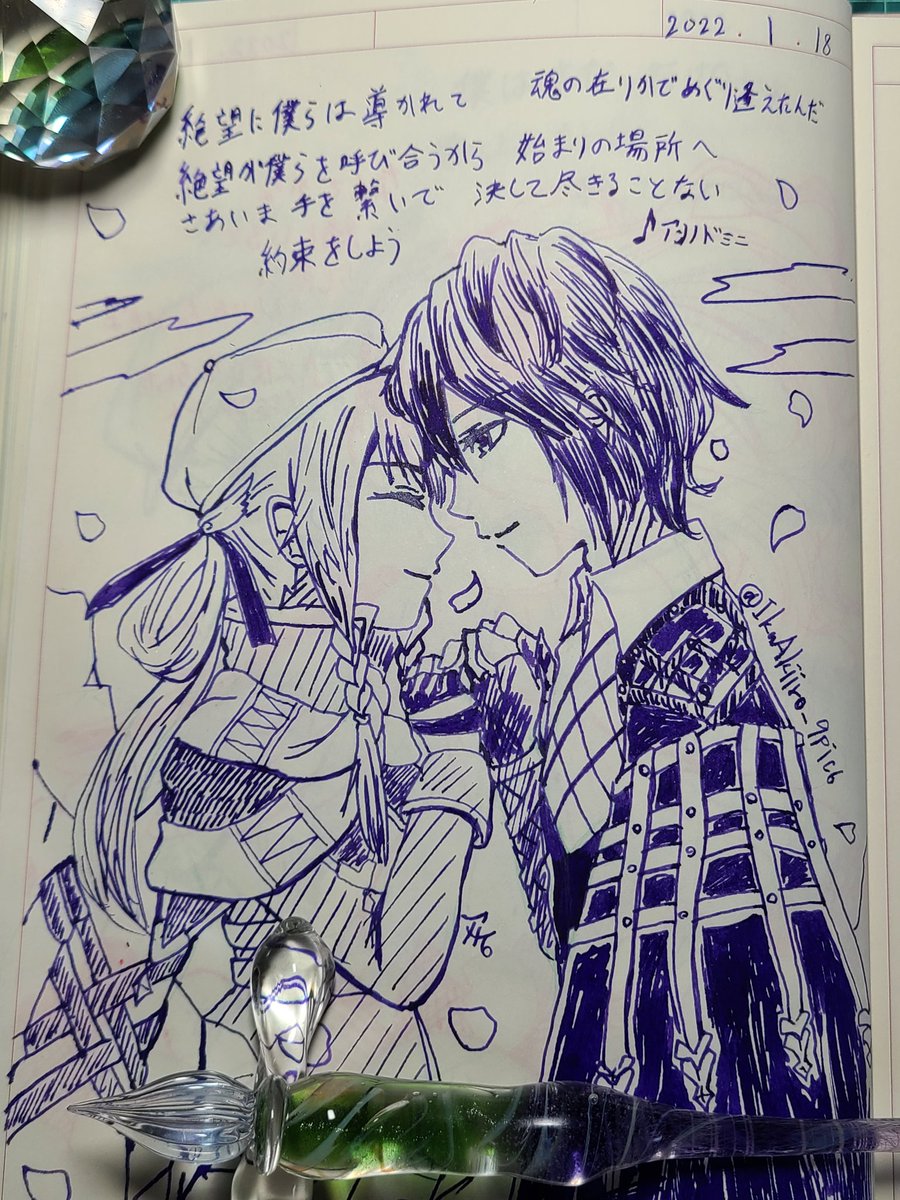 2022.1.18
絶望に僕らは導かれて 魂の在りかでめぐり逢えたんだ
絶望が僕らを呼び合うから 始まりの場所へ
さあいま 手を繋いで 決して尽きることない
約束をしよう
♪アノドミニ